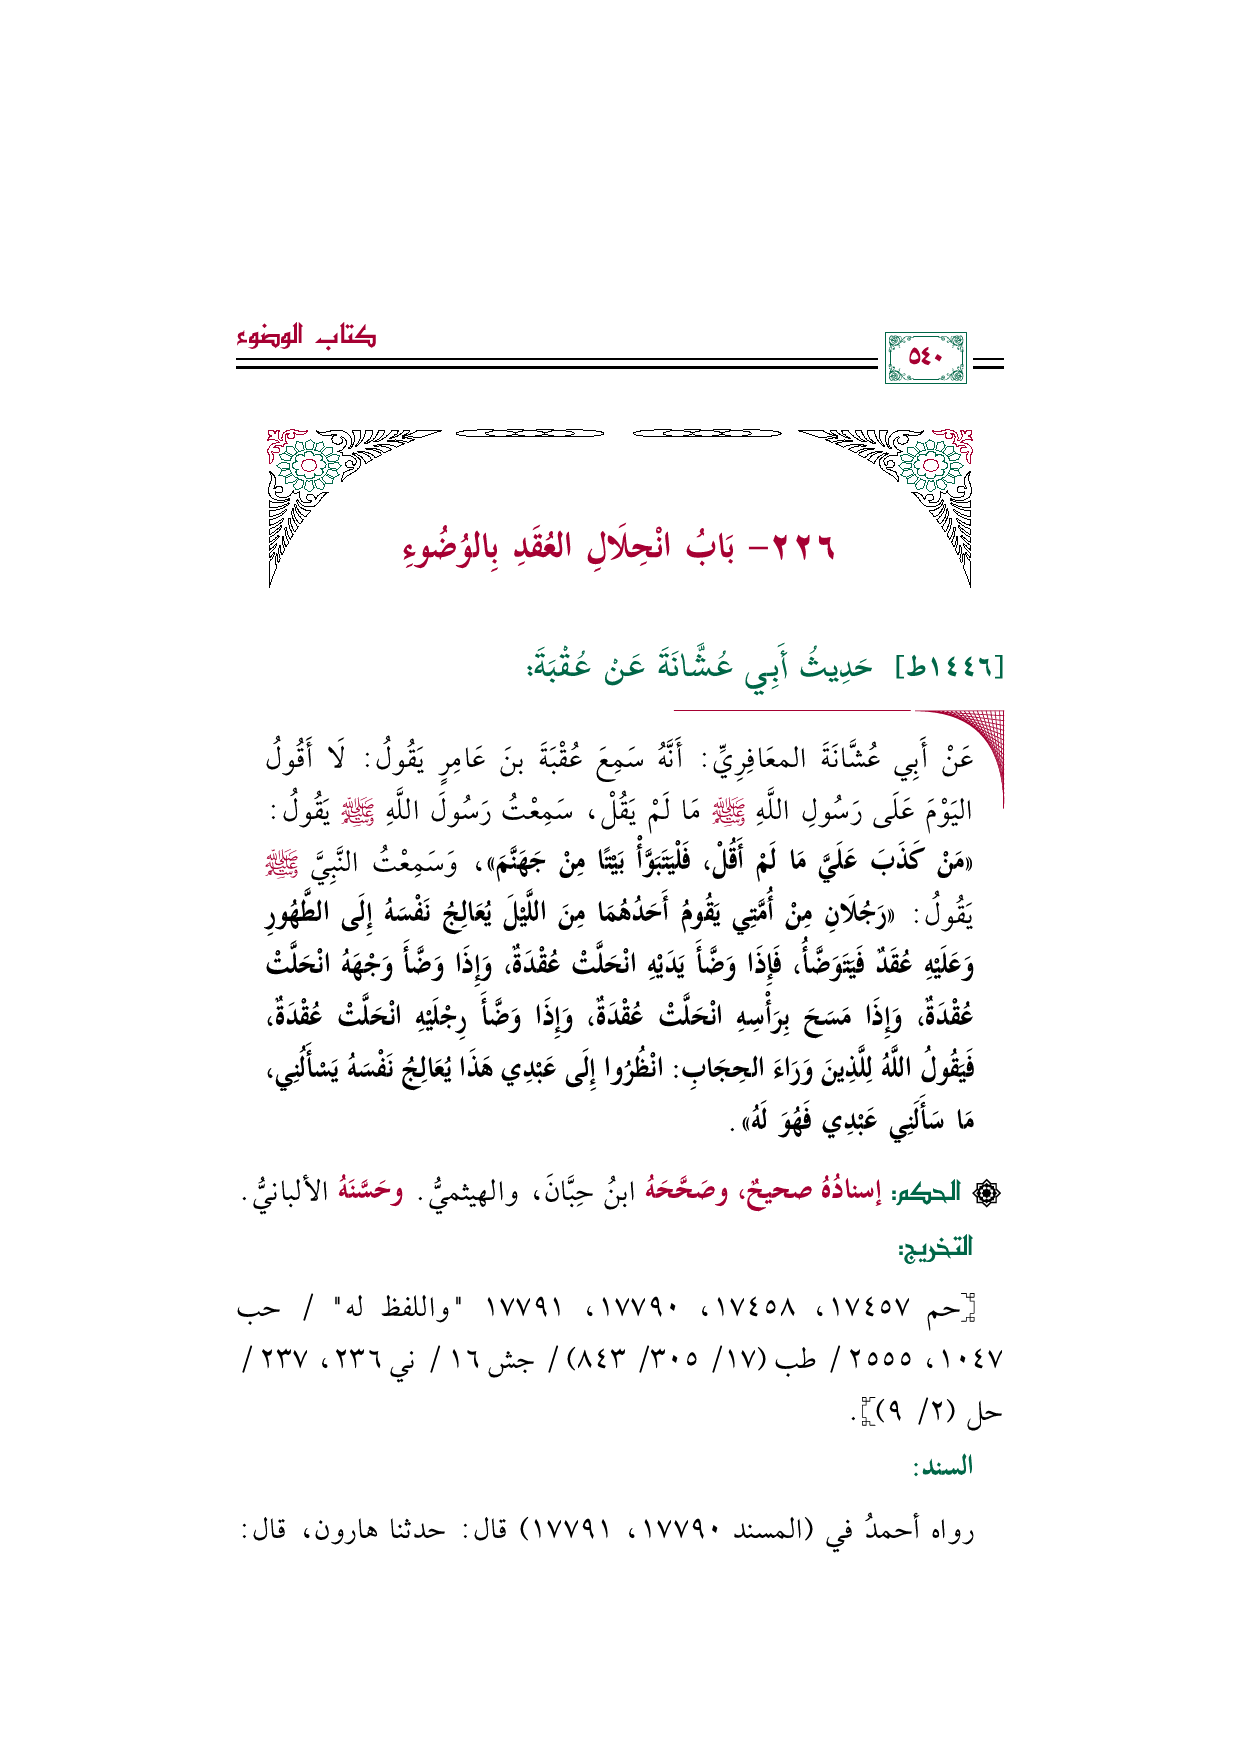 كتاب الوضوء
٥٤٠
٢٢٦- بَابُ انْحِلَالِ العُقَدِ بِالوُضُوءِ
[١٤٤٦ط] حَدِيثُ أَبِي عُشَّانَةَ عَنْ عُقْبَةَ:
عَنْ أَبِي عُشَّانَةَ المعَافِرِيِّ: أَنَّهُ سَمِعَ عُقْبَةَ بنَ عَامِرٍ يَقُولُ: لَا أَقُولُ
اليَوْمَ عَلَى رَسُولِ اللَّهِ ﷺ مَا لَمْ يَقُلْ، سَمِعْتُ رَسُولَ اللَّهِ ﷺ يَقُولُ:
«مَنْ كَذَبَ عَلَيَّ مَا لَمْ أَقُلْ، فَلْيَتَبَوَّأْ بَيْتًا مِنْ جَهَنَّمَ»، وَسَمِعْتُ النَّبِيَّ ﷺ
يَقُولُ: «رَجُلَانِ مِنْ أُمَّتِي يَقُومُ أَحَدُهُمَا مِنَ اللَّيْلَ يُعَالِجُ نَفْسَهُ إِلَى الطَّهُورِ
وَعَلَيْهِ عُقَدٌ فَيَتَوَضَّأُ، فَإِذَا وَضَّأَ يَدَيْهِ انْحَلَّتْ عُقْدَةٌ، وَإِذَا وَضَّأَ وَجْهَهُ انْحَلَّتْ
عُقْدَةٌ، وَإِذَا مَسَحَ بِرَأْسِهِ انْحَلَّتْ عُقْدَةٌ، وَإِذَا وَضَّأَ رِجْلَيْهِ انْحَلَّتْ عُقْدَةٌ،
فَيَقُولُ اللَّهُ لِلَّذِينَ وَرَاءَ الحِجَابِ: انْظُرُوا إِلَى عَبْدِي هَذَا يُعَالِجُ نَفْسَهُ يَسْأَلُنِي،
مَا سَأَلَنِي عَبْدِي فَهُوَ لَهُ».
الحكم: إسنادُهُ صحيحٌ، وصَحَّحَهُ ابنُ حِبَّانَ، والهيثميُّ. وحَسَّنَهُ الألبانيُّ.
التخريج:
[حم ١٧٤٥٧، ١٧٤٥٨، ١٧٧٩٠، ١٧٧٩١ "واللفظ له" / حب
١٠٤٧، ٢٥٥٥ / طب (١٧/ ٣٠٥/ ٨٤٣) / جش ١٦ / ني ٢٣٦، ٢٣٧ /
حل (٢/ ٩)].
السند:
رواه أحمدُ في (المسند ١٧٧٩٠، ١٧٧٩١) قال: حدثنا هارون، قال: